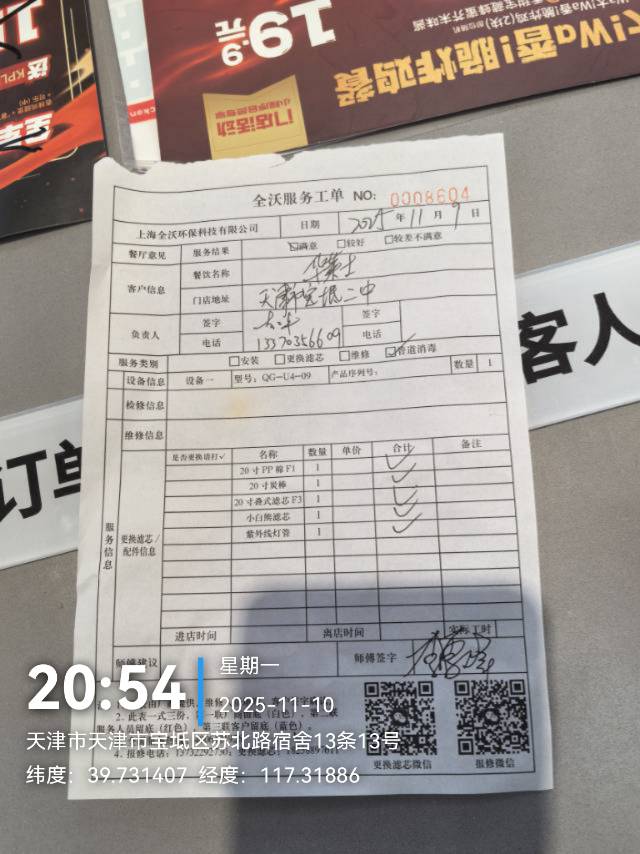 19.9元
大!Wa香!脆炸鸡餐
门店活动
全沃服务工单 NO: 0008604
上海全沃环保科技有限公司 日期 2025年11月9日
餐厅意见 服务结果 ☑满意 □较好 □较差不满意
客户信息 餐饮名称 华莱士
门店地址 天津宝坻二中
负责人 签字 签字
电话 13370356609 电话
服务类别 □安装 □更换滤芯 □维修 ☑管道消毒
设备信息 设备一 型号：QG-U4-09 产品序列号： 数量 1
检修信息
维修信息
服务信息
更换滤芯/配件信息
是否更换请打✓ 名称 数量 单价 合计 备注
20寸PP棉F1 1 ✓
20寸炭棒 1 ✓
20寸叠式滤芯F3 1 ✓
小白熊滤芯 1 ✓
紫外线灯管 1 ✓
进店时间 离店时间 实际工时
师傅建议 师傅签字
2. 此表一式三份，
服务人员留底（红色），第三联客户留底（蓝色）。
更换滤芯微信 报修微信
订单
客人
20:54
星期一
2025-11-10
天津市天津市宝坻区苏北路宿舍13条13号
纬度：39.731407 经度：117.31886